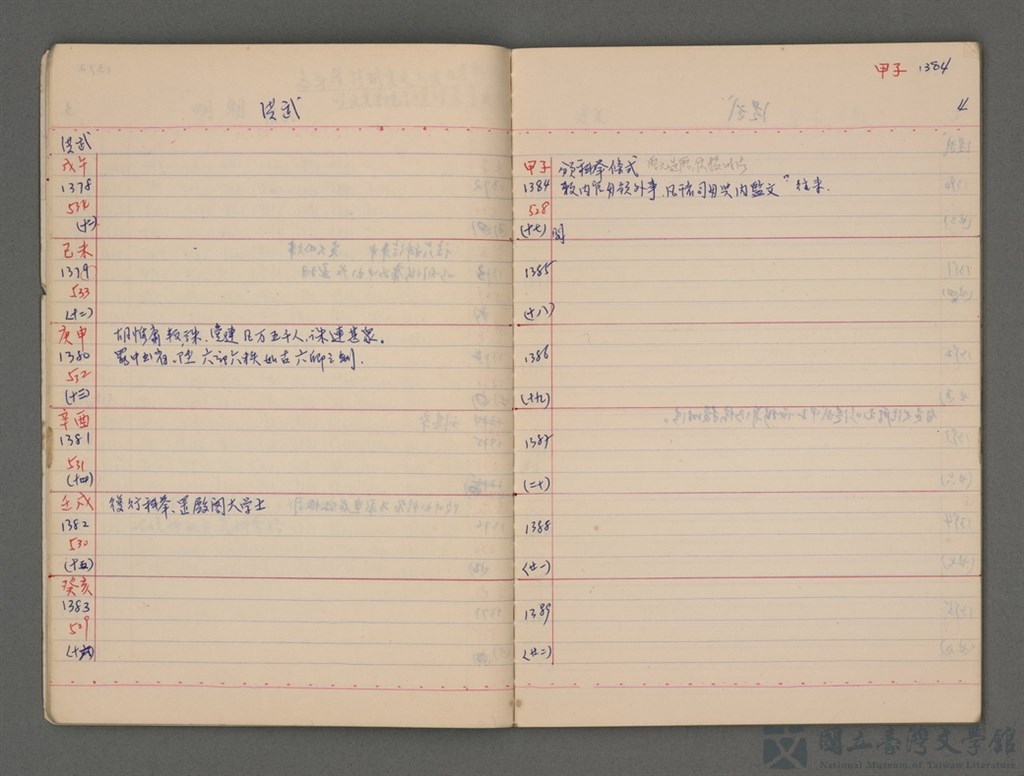 洪武
洪武
戊午
1378
534
(十一)
己未
1379
533
(十二)
庚申
1380
532
(十三)
胡惟庸叛誅,黨連凡万五千人,誅連甚眾。
罷中书省,陞六部六秩如古六卿之制.
辛酉
1381
531
(十四)
壬戌
1382
530
(十五)
復行科举,置殿阁大学士
癸亥
1383
529
(十六)
甲子 1384
4
甲子
1384
528
(十七)
頒科举條式
敕内官勿預外事,凡諸司勿与内監文〃往来.
1385
(十八)
1386
(十九)
1387
(二十)
1388
(廿一)
1389
(廿二)
國立臺灣文學館
National Museum of Taiwan Literature